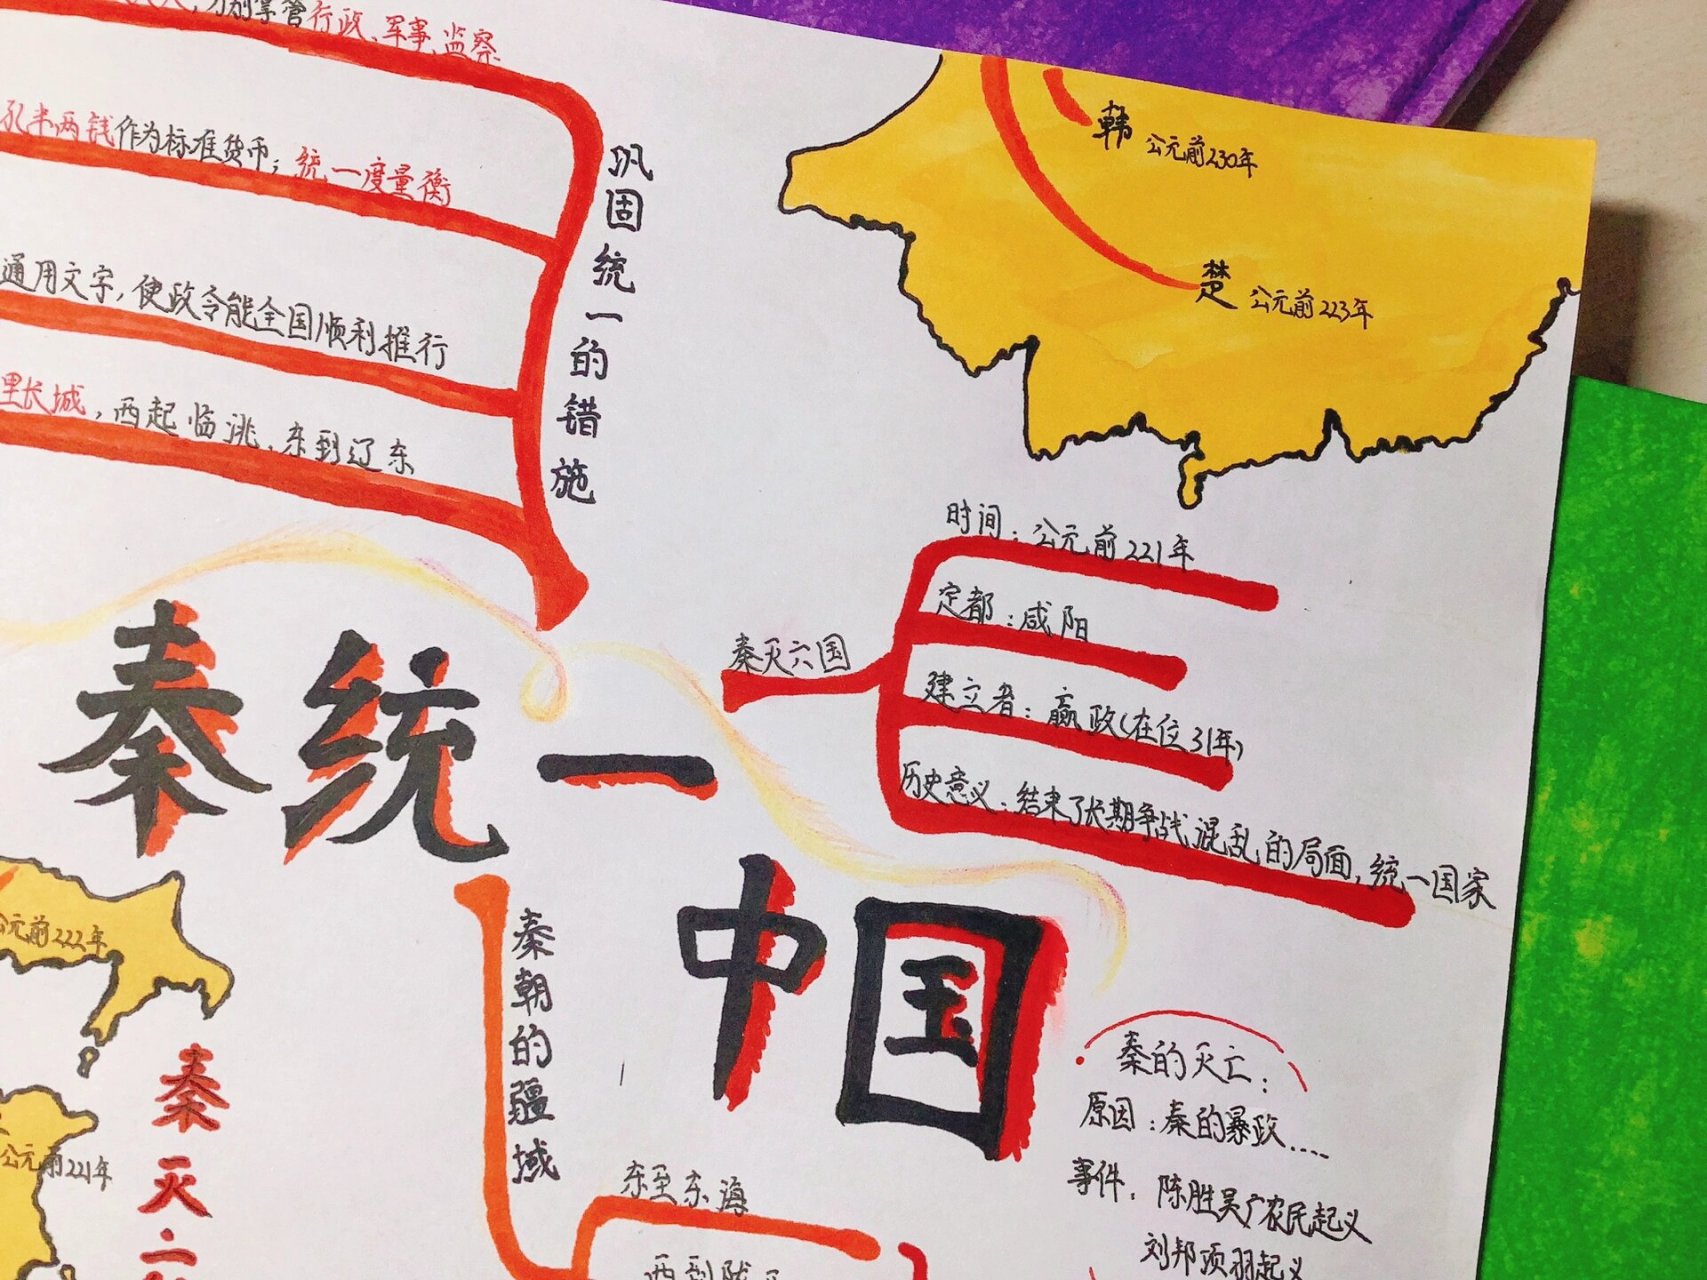 分别掌管行政、军事、监察
孔半两钱作为标准货币；统一度量衡
通用文字，使政令能全国顺利推行
里长城，西起临洮，东到辽东
巩固统一的措施
韩 公元前230年
楚 公元前223年
秦灭六国
时间：公元前221年
定都：咸阳
建立者：嬴政（在位31年）
历史意义：结束了长期争战混乱的局面，统一国家
秦统一
中国
公元前222年
公元前221年
秦灭六
秦朝的疆域
东至东海
西到陇
秦的灭亡：
原因：秦的暴政……
事件：陈胜吴广农民起义
刘邦项羽起义